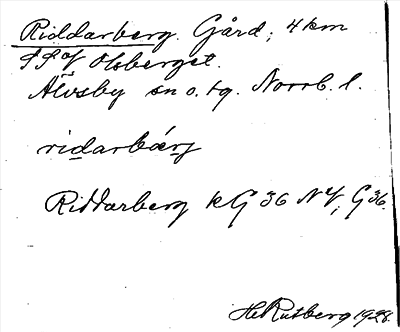 Riddarberg. Gård; 4 km
SSV Olsberget.
Älvsby sn o. tg. Norrb. l.
ridarbærj
Riddarberg kG 36 NV; G 36.
H Rutberg 1928.